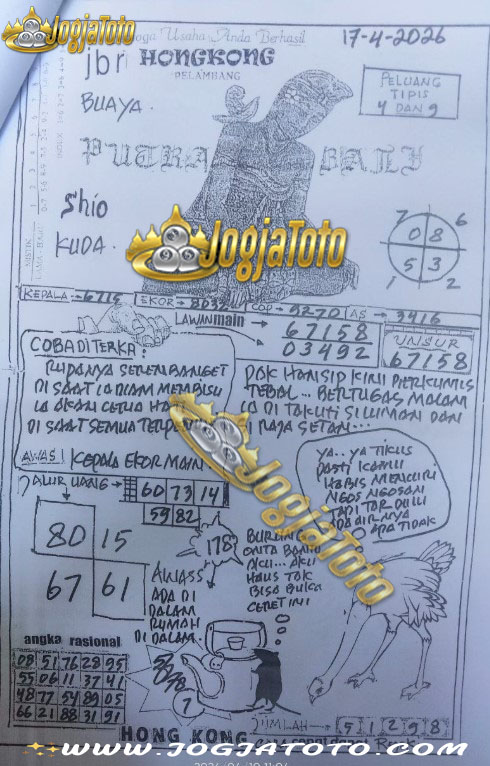 JogjaToto
Usaha Anda Berhasil
17-4-2026
jbr
HONGKONG
PELAMBANG
PELUANG
TIPIS
4 DAN 9
BUAYA.
PUTRA BALI
Shio
KUDA.
JogjaToto
7 6
0 8
5 3
1 2
KEPALA → 6715
EKOR →
COP → 5270
AS → 3416
LAWAN main
67158
03492
UNSUR
67158
COBA DITERKA:
RUPANYA SEREM BANGET
DI SAAT IA DIAM MEMBISU
DI SAAT SEMUA
PAK HANSIP KINI BERKUMIS
TEBAL... BERTUGAS MALAM
DI TAKUTI SILUMAN DAN
RAJA SETAN...
AWAS! KEPALA EKOR MAIN
JALUR UANG →
60 73 14
59 82
80 15
67 61
178
YA.. YA TIKUS
PASTI KAMU
HABIS MENCURI
NGOS NGOSAN
TADI TAK DULU
ADA AIRNYA
APA TIDAK
BURUNG
ONTA BANTU
AKU... AKU
HAUS TAK
BISA BUKA
CERET INI
AWASS
ADA DI
DALAM
RUMAH
DI DALAM.
JogjaToto
angka rasional
08 51 76 28 95
55 06 11 37 41
48 77 54 89 05
66 21 88 31 91
7
JUMLAH → 5 1 2 9 8
HONG KONG
WWW.JOGJATOTO.COM